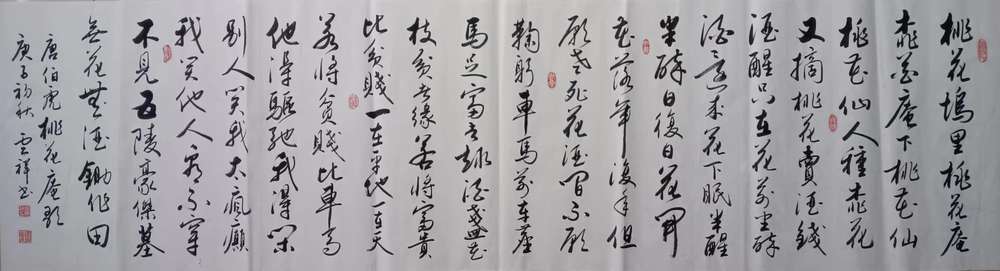 桃花塢里桃花庵
桃花庵下桃花仙
桃花仙人種桃花
又摘桃花賣酒錢
酒醒只在花前坐醉
酒還來花下眠半醒
半醉日復日花開
花落年復年但
願老死花酒間不願
鞠躬車馬前車塵
馬足富者趣酒盞花
枝貧者緣若將富貴
比貧賤一在平地一在天
若將貧賤比車馬
他得驅馳我得閑
別人笑我太瘋癲
我笑他人看不穿
不見五陵豪傑墓
無花無酒鋤作田
唐伯虎桃花庵歌
庚子初秋 雲祥書